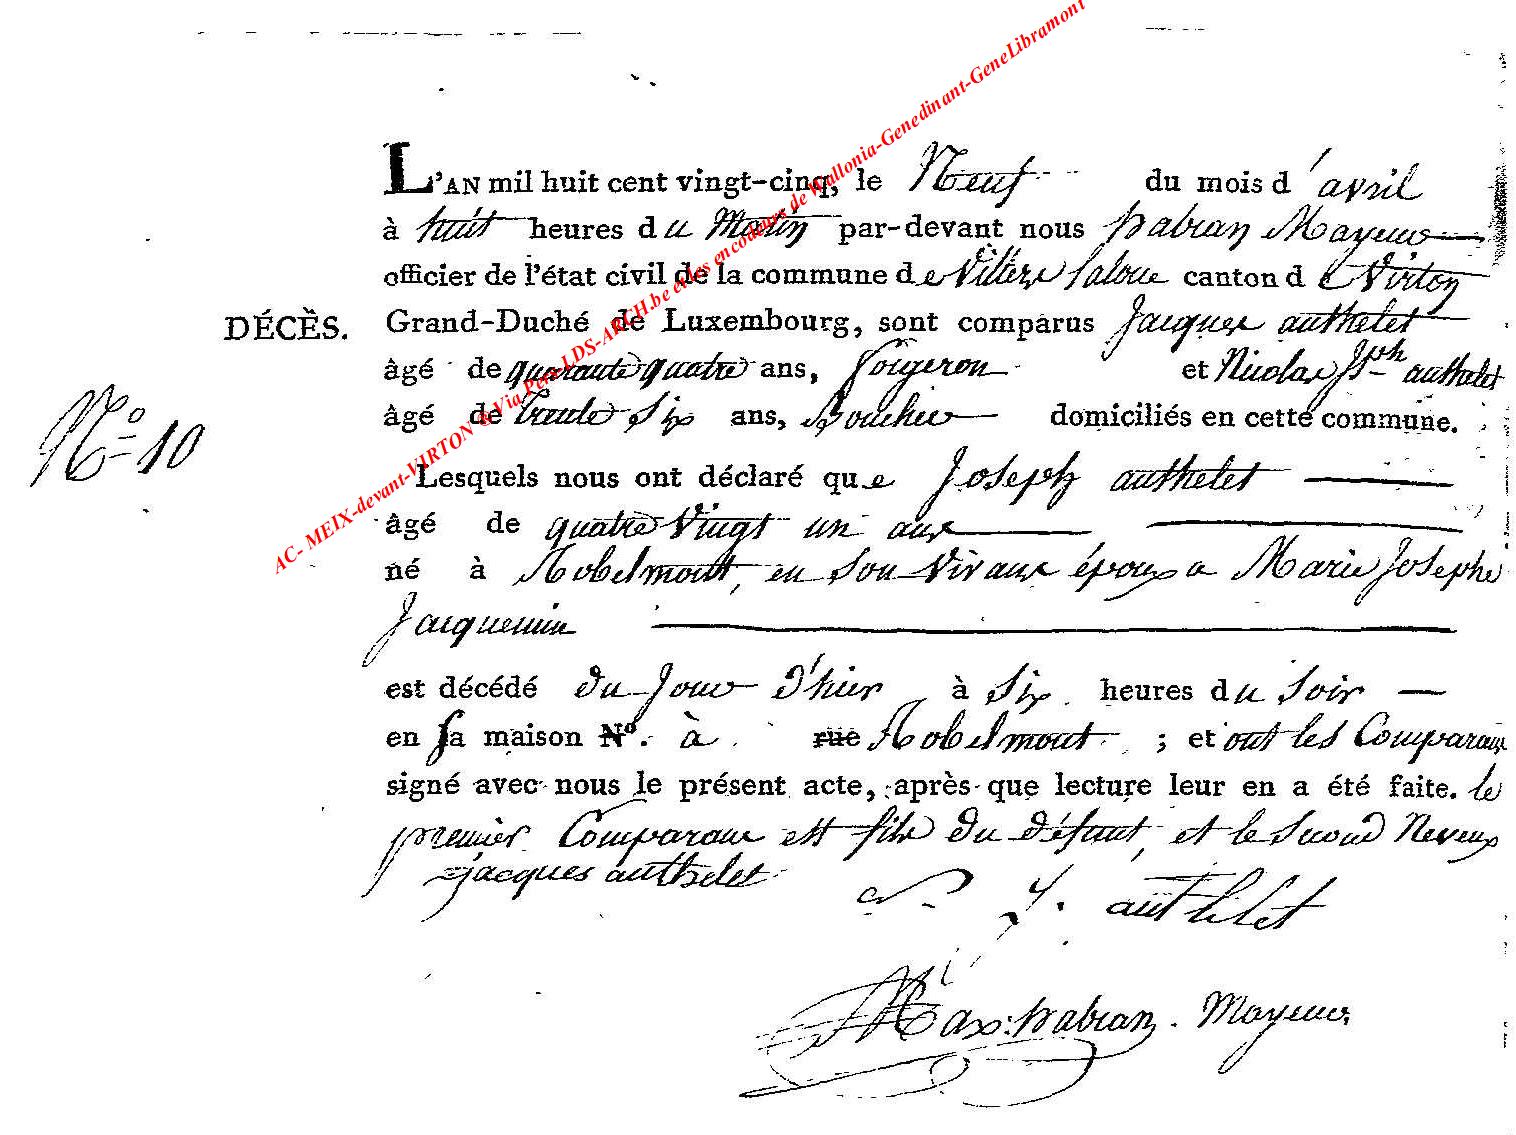 AC- MEIX-devant-VIRTON ® Via Père LDS-ARCH.be et les encodeurs de Wallonia-Genedinant-GeneLibramont
L'AN mil huit cent vingt-cinq, le Neuf du mois d'avril
à huit heures du Matin par-devant nous habran Mayeur
officier de l'état civil de la commune de Villers la loue canton de Virton
DÉCÈS.
Grand-Duché de Luxembourg, sont comparus Jacques authelet
âgé de quarante quatre ans, forgeron et Nicolas Jph authelet
N° 10
âgé de trente six ans, Boucher domiciliés en cette commune.
Lesquels nous ont déclaré que Joseph authelet
âgé de quatre Vingt un ans
né à Robelmont, en son Vivant époux a Marie Josephe
Jacquemin
est décédé du Jour d'hier à Six heures du Soir
en sa maison N°. à rue Robelmont ; et ont les Comparans
signé avec nous le présent acte, après que lecture leur en a été faite. le
premier Comparant est fils du défunt, et le second Neveux
Jacques authelet
authelet
Max: habran. Mayeur